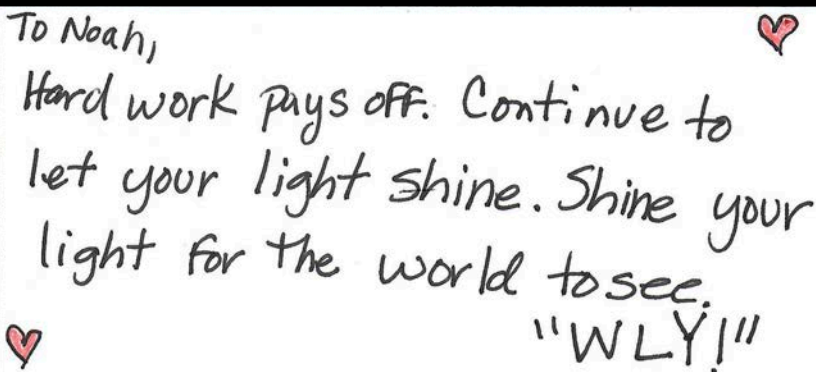 To Noah,
Hard work pays off. Continue to
let your light shine. Shine your
light for the world to see.
"WLY!"